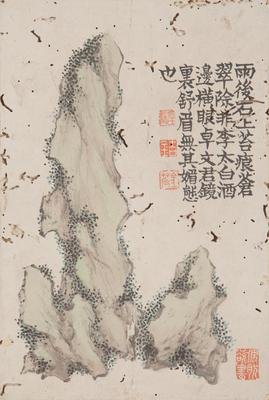 雨後石上苔痕蒼
翠除非李太白酒
邊橫眼卓文君鏡
裏舒眉無其媚態
也